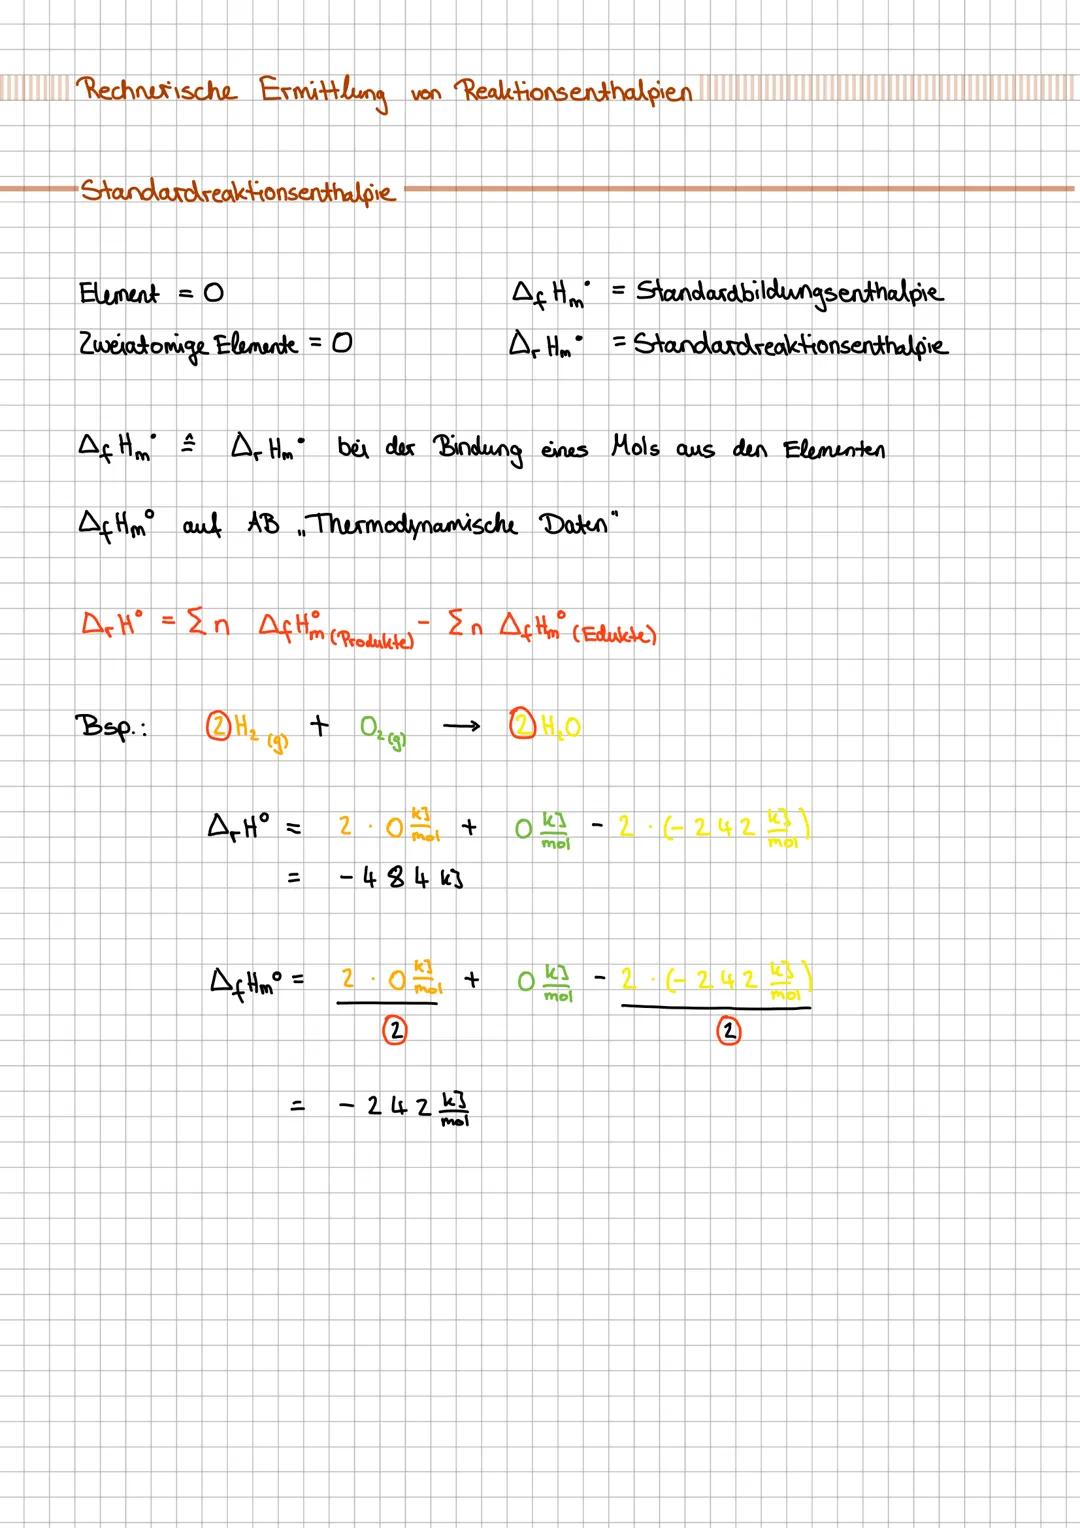 Rechnerische Ermittlung von Reaktionsenthalpien
Standardreaktionsenthalpie
Element = 0
ΔfHm° = Standardbildungsenthalpie
Zweiatomige Elemente = 0
ΔrHm° = Standardreaktionsenthalpie
ΔfHm° ≙ ΔrHm° bei der Bindung eines Mols aus den Elementen
ΔfHm° auf AB „Thermodynamische Daten"
ΔrH° = Σn ΔfHm° (Produkte) - Σn ΔfHm° (Edukte)
Bsp.: 2 H₂ (g) + O₂ (g) → 2 H₂O
ΔrH° = 2 · 0 kJ/mol + 0 kJ/mol - 2 · (- 242 kJ/mol)
= - 484 kJ
ΔfHm° = 2 · 0 kJ/mol + 0 kJ/mol - 2 · (- 242 kJ/mol)
2 2
= - 242 kJ/mol